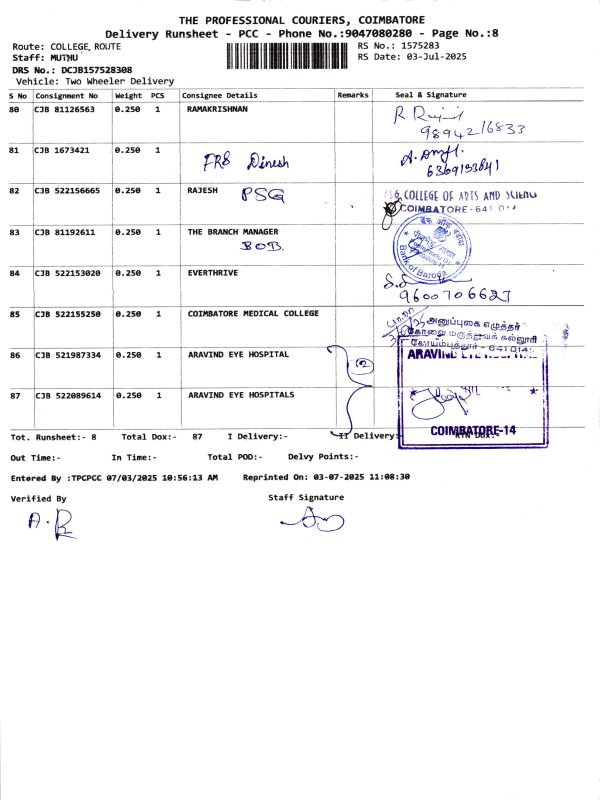 THE PROFESSIONAL COURIERS, COIMBATORE
Delivery Runsheet - PCC - Phone No.:9047080280 - Page No.:8
Route: COLLEGE, ROUTE
RS No.: 1575283
Staff: MUTHU
RS Date: 03-Jul-2025
DRS No.: DCJB157528308
Vehicle: Two Wheeler Delivery
S No Consignment No Weight PCS Consignee Details Remarks Seal & Signature
80 CJB 81126563 0.250 1 RAMAKRISHNAN
98942 16833
81 CJB 1673421 0.250 1
FRS Dinesh
6369193841
82 CJB 522156665 0.250 1 RAJESH PSG
COLLEGE OF ARTS AND SCIENC
COIMBATORE-641 014
83 CJB 81192611 0.250 1 THE BRANCH MANAGER
BOB
बैंक ऑफ़ बड़ौदा
Bank of Baroda
84 CJB 522153020 0.250 1 EVERTHRIVE
9600706627
85 CJB 522155250 0.250 1 COIMBATORE MEDICAL COLLEGE
அனுப்புகை எழுத்தர்
கோவை மருத்துவக் கல்லூரி
கோயம்புத்தூர் - 641 014
86 CJB 521987334 0.250 1 ARAVIND EYE HOSPITAL
2
ARAVIND EYE HOSPITAL
87 CJB 522089614 0.250 1 ARAVIND EYE HOSPITALS
COIMBATORE-14
Tot. Runsheet:- 8 Total Dox:- 87 I Delivery:- II Delivery:- RTN Dox:-
Out Time:- In Time:- Total POD:- Delvy Points:-
Entered By :TPCPCC 07/03/2025 10:56:13 AM Reprinted On: 03-07-2025 11:08:30
Verified By Staff Signature